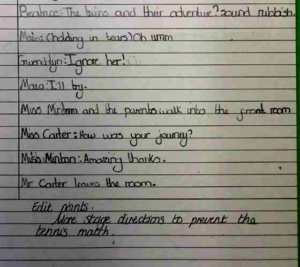 Beatrice: The twins and their adventure? sound rubbish.
Maia: (holding in tears) Oh umm
Gwendolyn: Ignore her!
Maia: I'll try.
Miss Minton and the parents walk into the front room
Miss Carter: How was your journey?
Miss Minton: Amazing thanks.
Mr Carter leaves the room.
Edit points.
More stage directions to prevent the
tennis match.